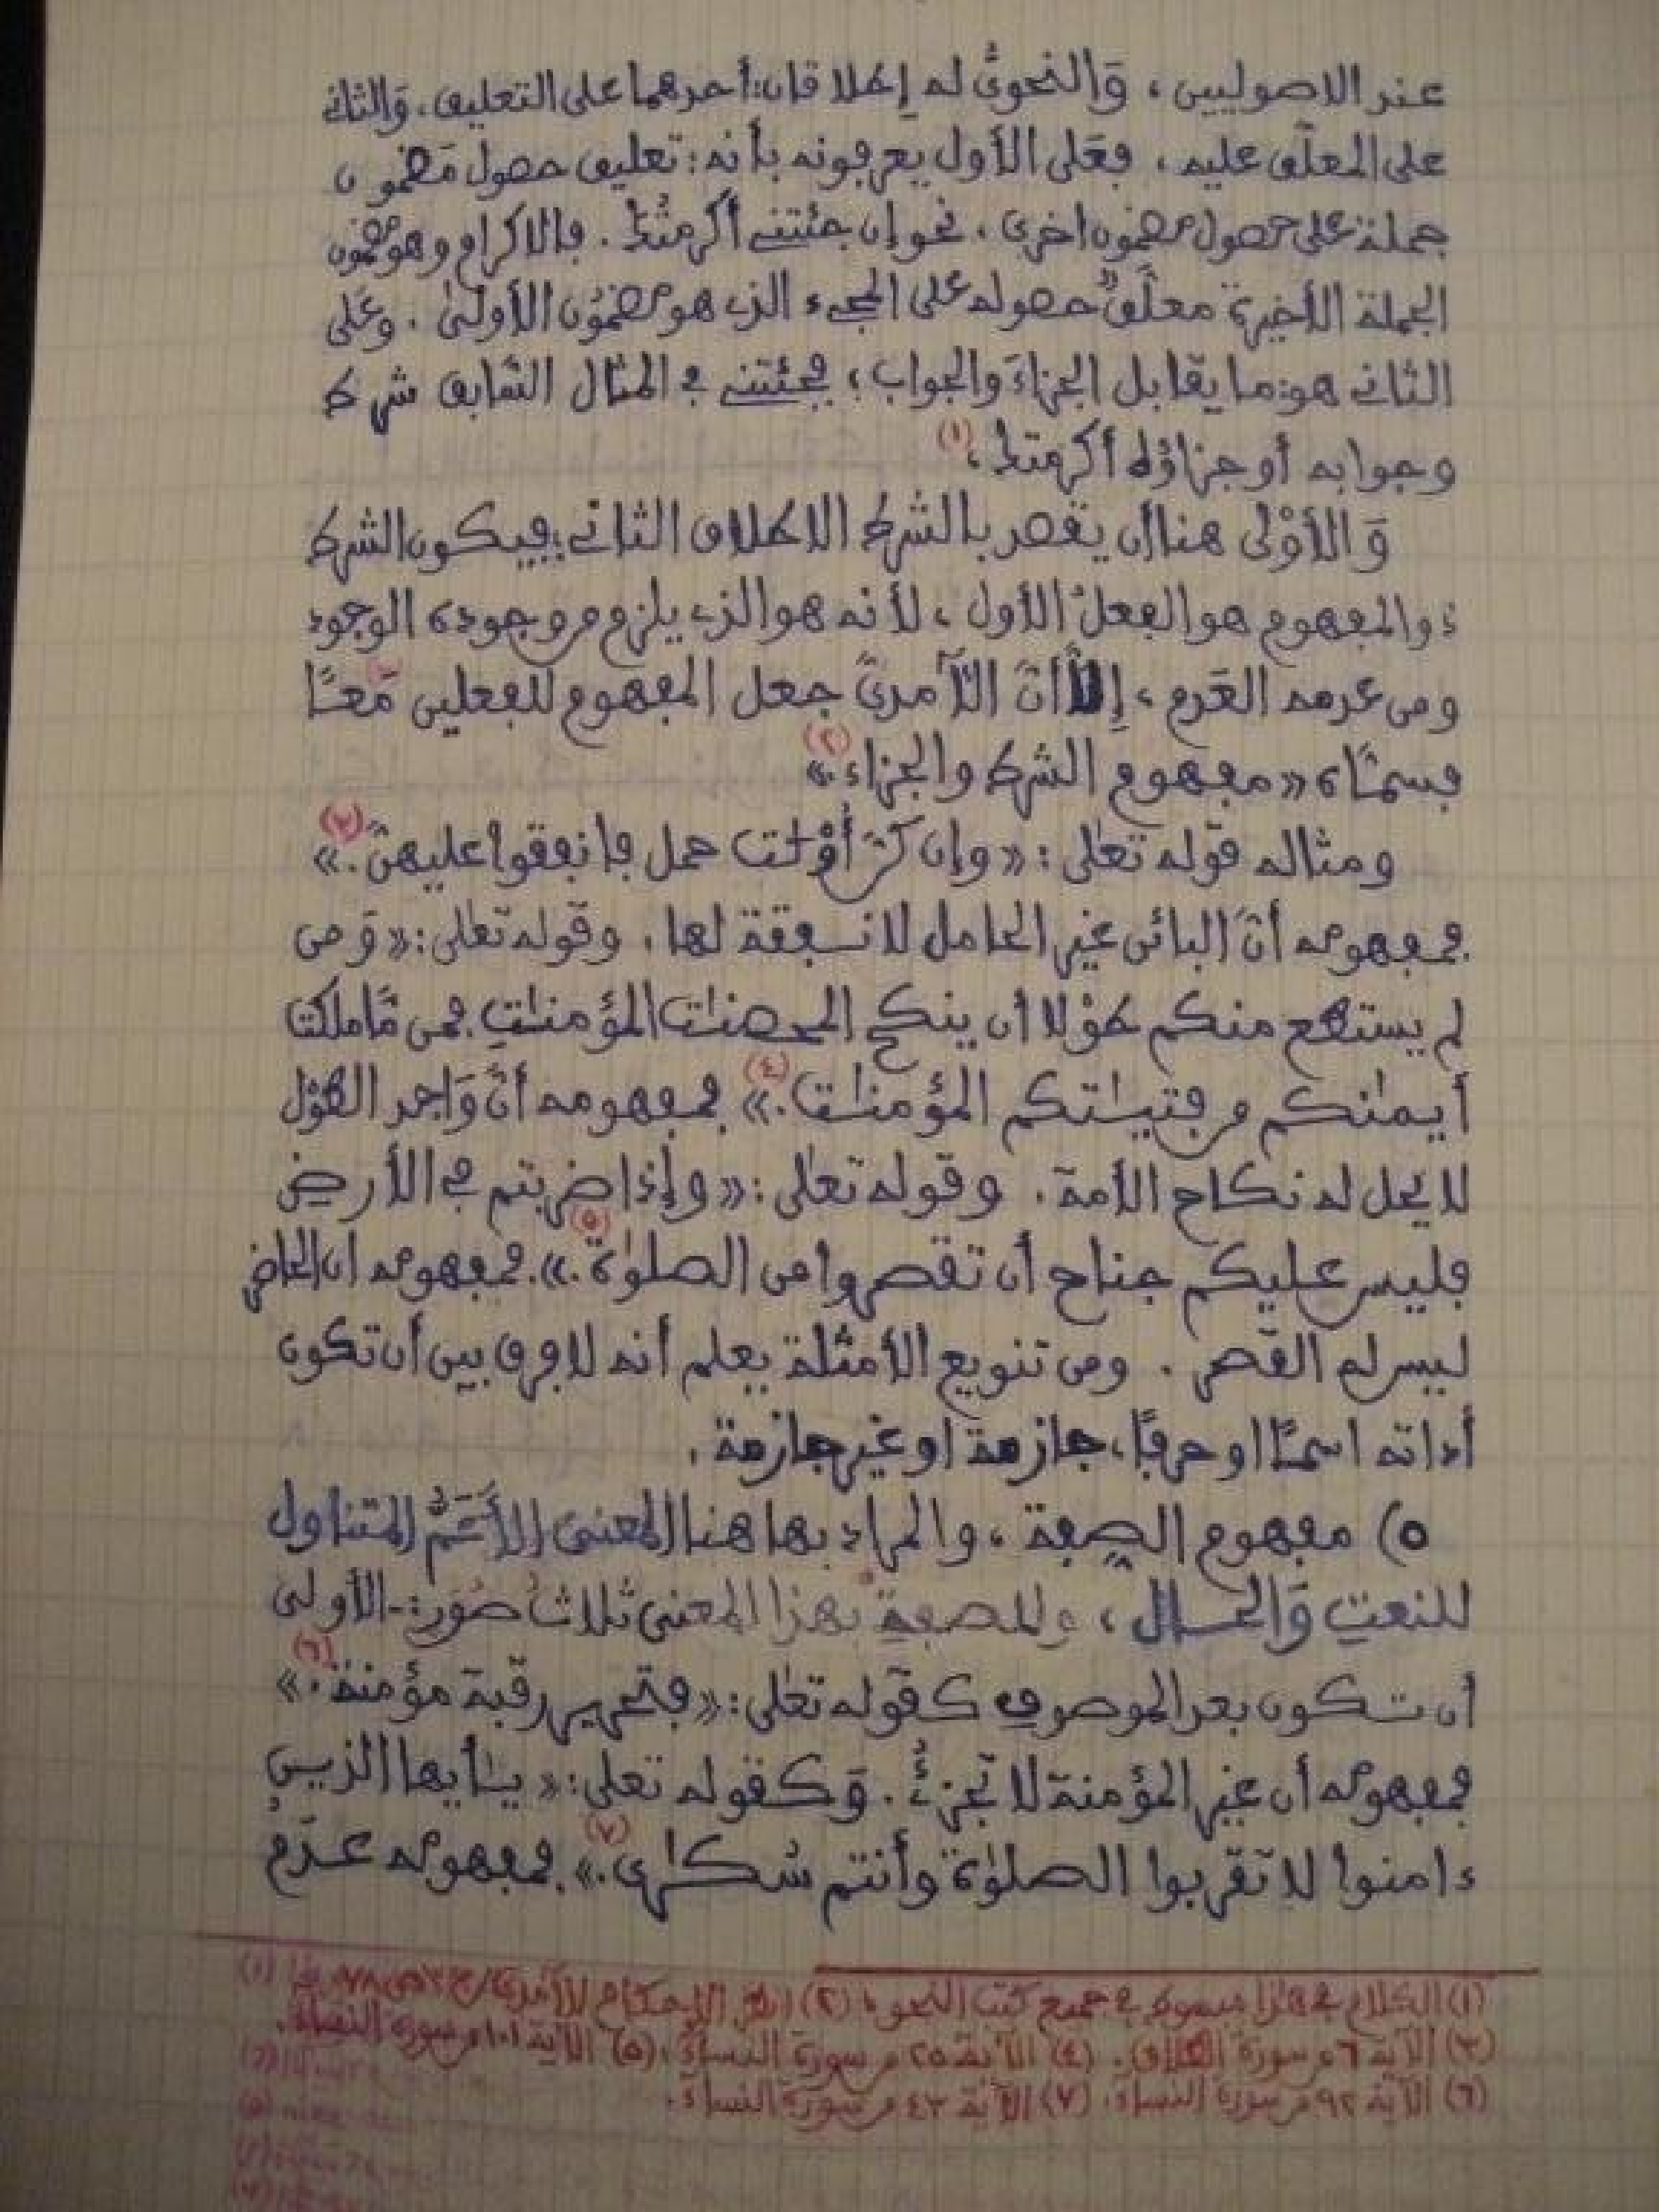 عند الاصوليين، وَالنحويُّ له إطلاقان: أحدهما على التعليق، وَالثاني
على المعلّق عليه، فعَلى الأول يعرفونه بأنه: تعليق حصول مَضمون
جملة على حصول مضمون اخرى، نحو إن جئتني أكرمتُك. فالاكرام وهو مضمون
الجملة الأخيرة معلَّقٌ حصوله على المجيء الذي هو مضمُون الأولىٰ. وعَلى
الثاني هو: ما يقابل الجزاءَ والجواب؛ فجئتني في المثال السَّابق شرط
وجوابه أو جزاؤه أكرمتك، (١)
وَالأوْلى هنا أن يقصد بالشرط الاطلاق الثاني؛ فيكون الشرط
ذو المفهوم هو الفعلُ الأول، لأنه هو الذي يلزم من وجوده الوجود
ومن عدمه العَدم، إلاَّ أنَّ الآمديَّ جعل المفهوم للفعلين مَعًا
فسمَّاه «مفهوم الشرط والجزاء.» (٢)
ومثاله قوله تعٰلى: «وإن كنَّ أوْلٰت حمل فانفقوا عليهنَّ.» (٣)
فمفهومه أنَّ البائن غير الحامل لا نفقة لها. وقوله تعٰلى: «وَمن
لم يستطع منكم طوْلا أن ينكح المحصنٰت المؤمنٰتِ فمن مَّا ملكت
أيمٰنكم من فتيٰتكم المؤمنٰت.» (٤) فمفهومه أنَّ وَاجد الطَّوْل
لا يحل له نكاح الأمة. وقوله تعٰلى: «وإذا ضربتم في الأرض
فليس عليكم جناح أن تقصروا من الصلوٰة.» (٥) فمفهومه ان الحاضر
ليس له القصر. ومن تنويع الأمثلة يعلم أنه لا فرق بين أن تكون
أداته اسمًا او حرفًا، جازمة او غير جازمة.
٥) مفهوم الصِفة، والمراد بها هنا المعنى الأَعَمُّ المتناول
للنعتِ وَالحال، وللصفةِ بهذا المعنى ثلاثُ صُوَر:- الأولى
أن تكون بعد الموصوف كقوله تعٰلى: «فتحرير رقبة مؤمنة.» (٦)
فمفهومه أن غير المؤمنة لا تُجزئُ. وَكقوله تعلى: «يٰأيها الذين
ءامنوا لا تقربوا الصلوٰة وأنتم سُكٰرى.» (٧) فمفهومه عدَمُ
(١) الكلام في هذا مبسوط في جميع كتب النحو. (٢) انظر الإحكام للآمدي/ج٣ ص
(٣) الآية ٦ من سورة الطلاق. (٤) الآية ٢٥ من سورة النساء. (٥) الآية ١٠١ من سورة النساء.
(٦) الآية ٩٢ من سورة النساء. (٧) الآية ٤٣ من سورة النساء.